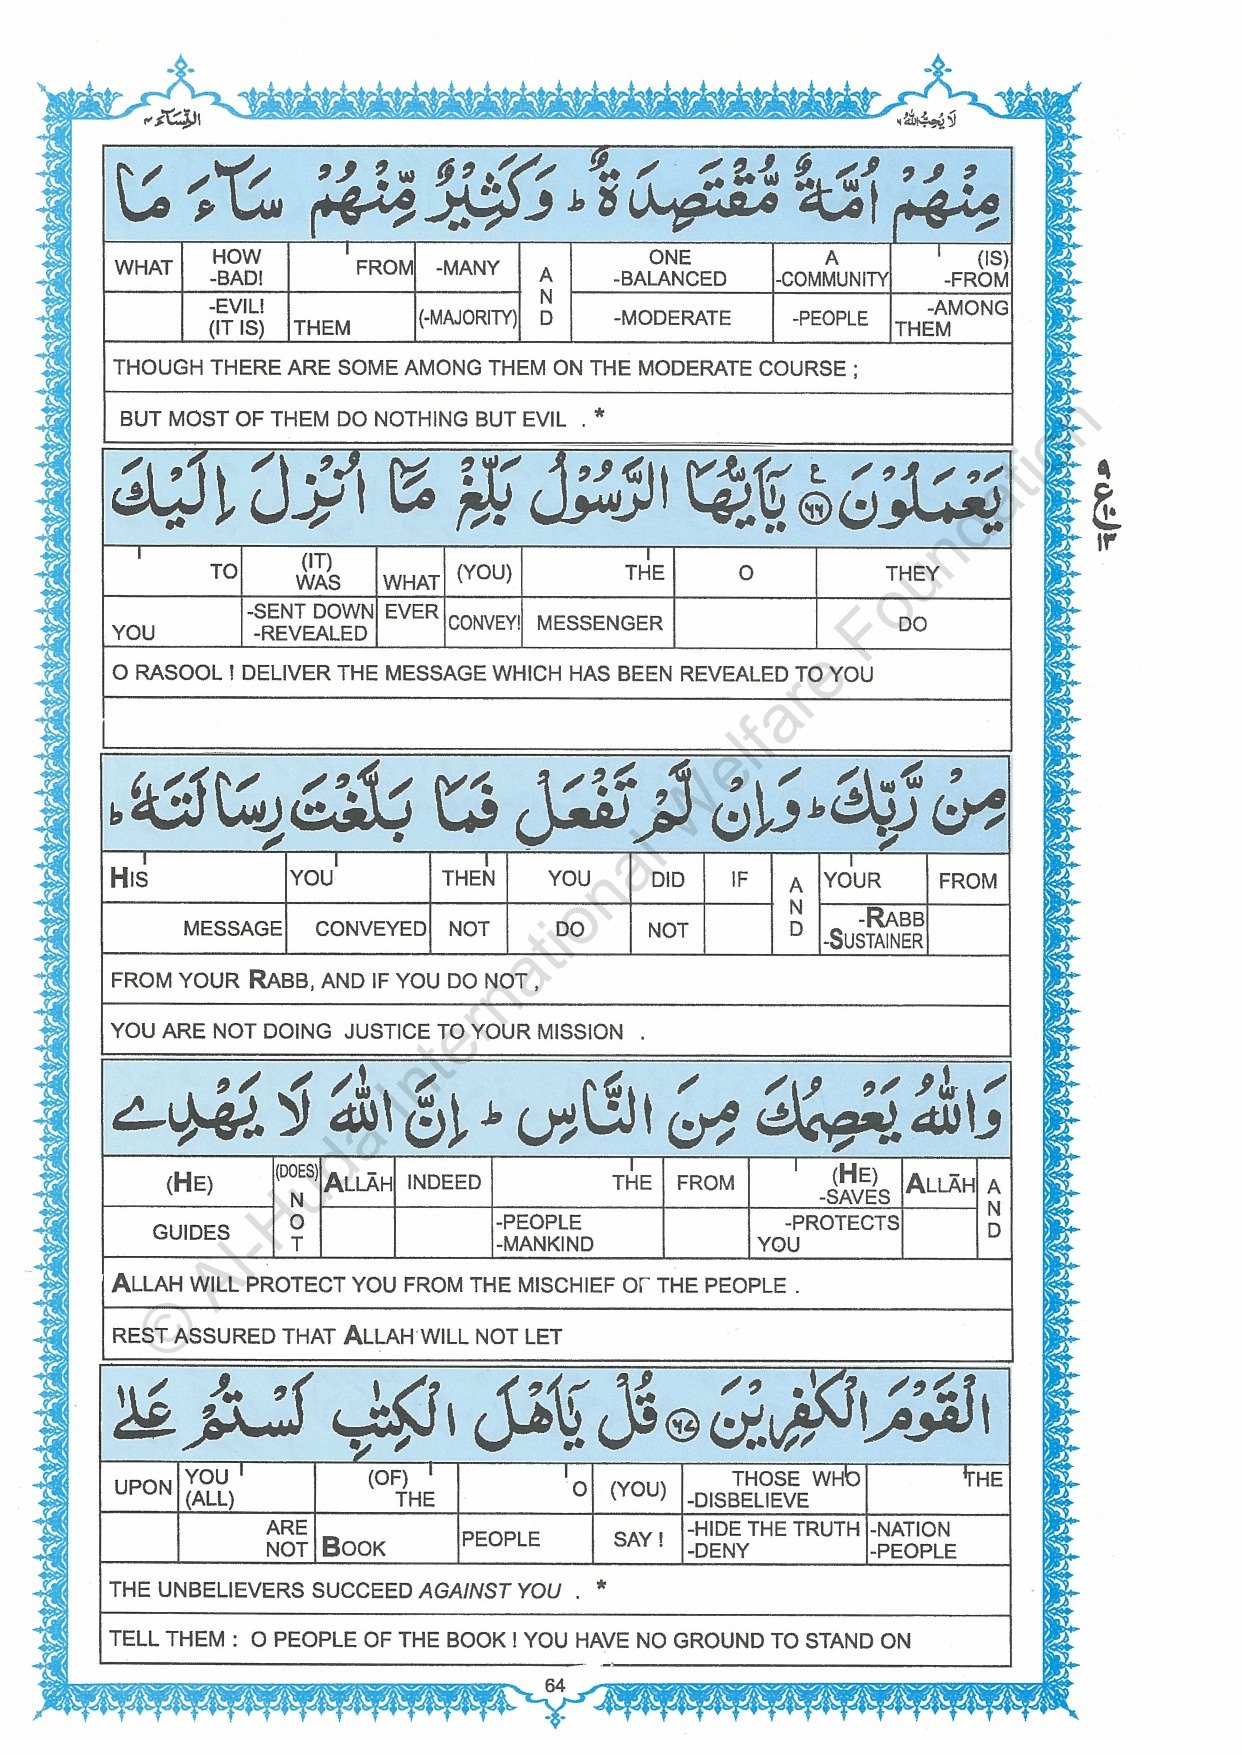 النِّسَآء ٤
لَا يُحِبُّ اللّٰهُ ٦
مِنْهُمْ اُمَّةٌ مُّقْتَصِدَةٌ ؕ وَكَثِيْرٌ مِّنْهُمْ سَآءَ مَا
WHAT HOW -BAD! FROM -MANY AND ONE -BALANCED A -COMMUNITY (IS) -FROM
-EVIL! (IT IS) THEM (-MAJORITY) -MODERATE -PEOPLE -AMONG THEM
THOUGH THERE ARE SOME AMONG THEM ON THE MODERATE COURSE ;
BUT MOST OF THEM DO NOTHING BUT EVIL . *
يَعْمَلُوْنَ ﴿٦٦﴾ ع يٰٓاَيُّهَا الرَّسُوْلُ بَلِّغْ مَآ اُنْزِلَ اِلَيْكَ
٩
ع ١٠
١٣
TO (IT) WAS WHAT (YOU) THE O THEY
YOU -SENT DOWN -REVEALED EVER CONVEY! MESSENGER DO
O RASOOL ! DELIVER THE MESSAGE WHICH HAS BEEN REVEALED TO YOU
مِنْ رَّبِّكَ ؕ وَاِنْ لَّمْ تَفْعَلْ فَمَا بَلَّغْتَ رِسَالَتَهٗ ؕ
HIS YOU THEN YOU DID IF AND YOUR FROM
MESSAGE CONVEYED NOT DO NOT -RABB -SUSTAINER
FROM YOUR RABB, AND IF YOU DO NOT ,
YOU ARE NOT DOING JUSTICE TO YOUR MISSION .
وَاللّٰهُ يَعْصِمُكَ مِنَ النَّاسِ ؕ اِنَّ اللّٰهَ لَا يَهْدِے
(HE) (DOES) NOT ALLĀH INDEED THE FROM (HE) -SAVES ALLĀH AND
GUIDES -PEOPLE -MANKIND -PROTECTS YOU
ALLAH WILL PROTECT YOU FROM THE MISCHIEF OF THE PEOPLE .
REST ASSURED THAT ALLAH WILL NOT LET
الْقَوْمَ الْكٰفِرِيْنَ ﴿٦٧﴾ قُلْ يٰٓاَهْلَ الْكِتٰبِ لَسْتُمْ عَلٰى
UPON YOU (ALL) (OF) THE O (YOU) THOSE WHO -DISBELIEVE THE
ARE NOT BOOK PEOPLE SAY ! -HIDE THE TRUTH -DENY -NATION -PEOPLE
THE UNBELIEVERS SUCCEED AGAINST YOU . *
TELL THEM : O PEOPLE OF THE BOOK ! YOU HAVE NO GROUND TO STAND ON
64
© Al-Huda International Welfare Foundation